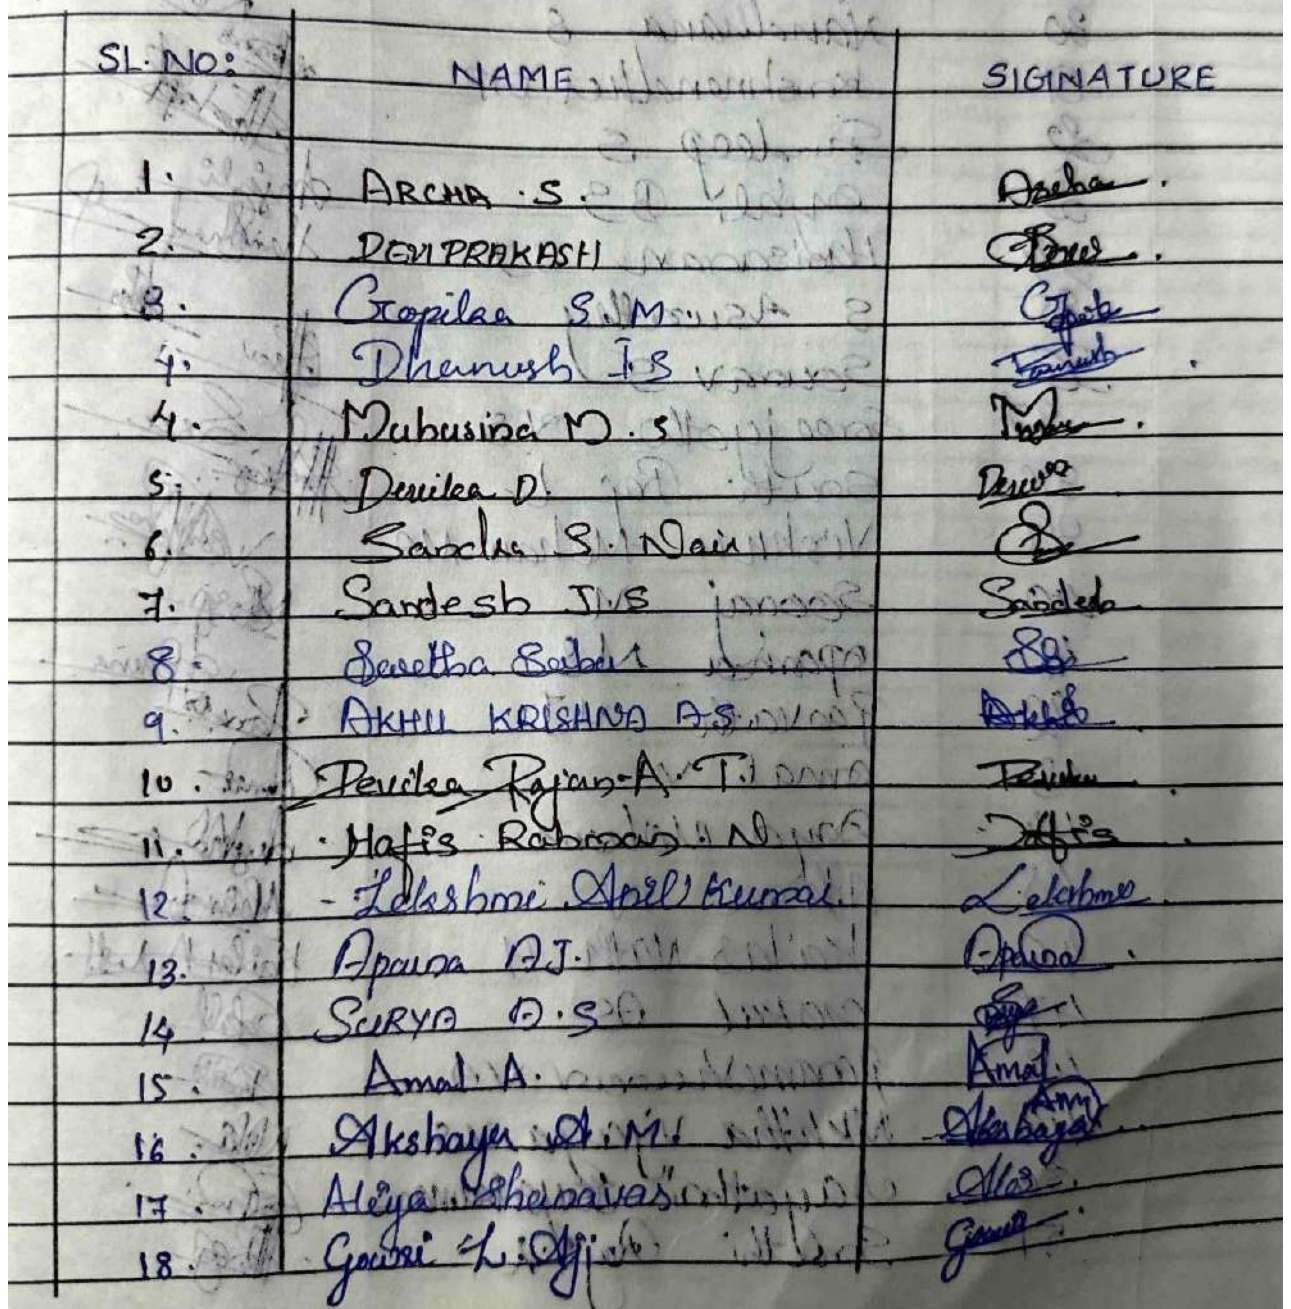 SL. NO: NAME SIGINATURE
1. ARCHA . S. Archa
2. DEVIPRAKASH
3. Gopika S. M.
4. Dhanush I S
4. Muhusina M . S
5. Devika D.
6. Sandra S. Nair
7. Sandesh J. S Sandesh
8. Babu
9. AKHIL KRISHNA A.S Akhil
10. Devika Rajan A. T. Devika
11. Hafis Rahman . N Hafis
12. Lekshmi Anil Kumar. Lekshmi
13. Aparna A J. Aparna
14 SURYA A . S
15. Amal. A. Amal.
16. Akshaya A. M. Akshaya
17. Aliya Shanavas
18. Gowri L. Aji Gowri